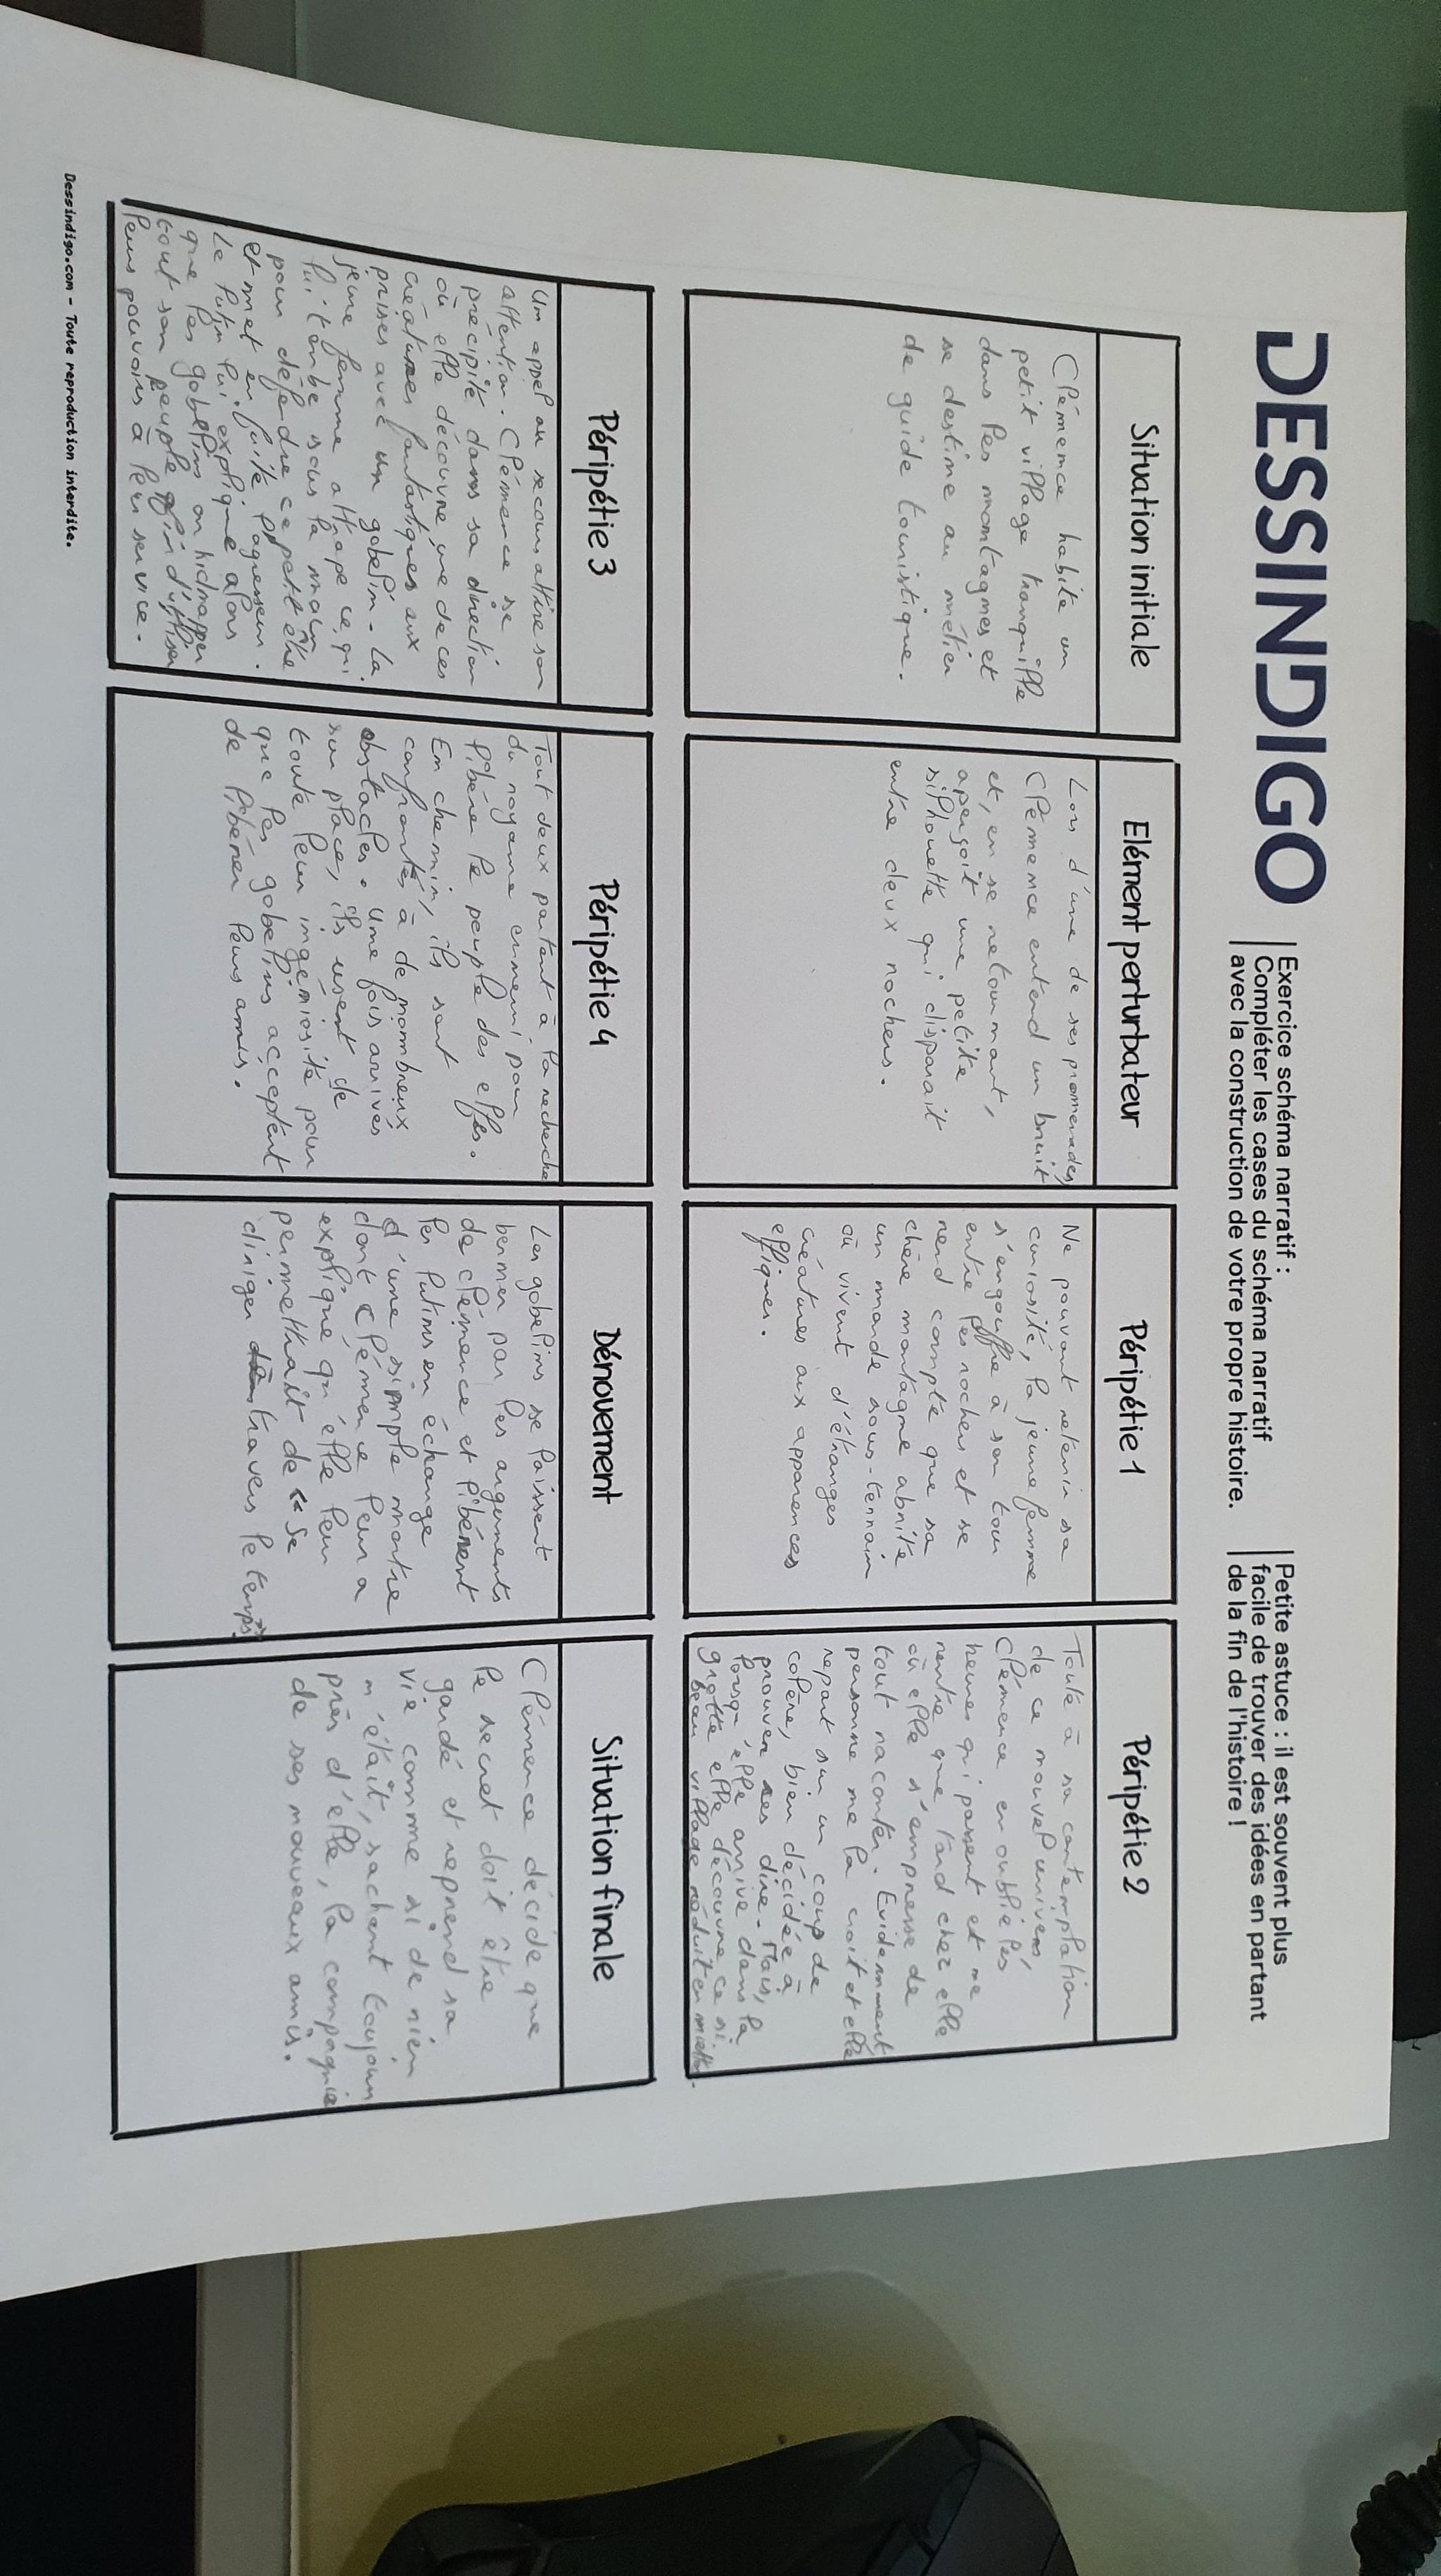 DESSINDIGO
Exercice schéma narratif :
Compléter les cases du schéma narratif
avec la construction de votre propre histoire.
Petite astuce : il est souvent plus
facile de trouver des idées en partant
de la fin de l'histoire !
Situation initiale
Clémence habite un
petit village tranquille
dans les montagnes et
se destine au métier
de guide touristique.
Elément perturbateur
Lors d'une de ses promenades,
Clémence entend un bruit
et, en se retournant,
aperçoit une petite
silhouette qui disparait
entre deux rochers.
Péripétie 1
Ne pouvant retenir sa
curiosité, la jeune femme
s'engouffre à son tour
entre les rochers et se
rend compte que sa
chère montagne abrite
un monde sous-terrain
où vivent d'étranges
créatures aux apparences
elfiques.
Péripétie 2
Toute à sa contemplation
de ce nouvel univers,
Clémence en oublie les
heures qui passent et ne
rentre que tard chez elle
où elle s'empresse de
tout raconter. Evidemment
personne ne la croit et elle
repart sur un coup de
colère, bien décidée à
prouver ses dire. Mais,
lorsqu'elle arrive dans la
grotte elle découvre ce si
beau village réduit en miettes.
Péripétie 3
Un appel au secours attire son
attention. Clémence se
précipite dans sa direction
où elle découvre une de ces
créatures fantastiques aux
prises avec un gobelin. La
jeune femme attrape ce qui
lui tombe sous la main
pour défendre ce petit être
et met en fuite l'agresseur.
Le lutin lui explique alors
que les gobelins on kidnapper
tout son peuple afin d'utiliser
leurs pouvoirs à leur service.
Péripétie 4
Tout deux partent à la recherche
du royaume ennemi pour
libérer le peuple des elfes.
En chemin, ils sont
confrontés à de nombreux
obstacles. Une fois arrivés
sur place, ils usent de
toute leur ingéniosité pour
que les gobelins acceptent
de libérer leurs amis.
Dénouement
Les gobelins se laissent
berner par les arguments
de clémence et libèrent
les lutins en échange
d'une simple montre
dont Clémence leur a
expliqué qu'elle leur
permettrait de « se
diriger à travers le temps ».
Situation finale
Clémence décide que
le secret doit être
gardé et reprend sa
vie comme si de rien
n'était, sachant toujours
près d'elle, la compagnie
de ses nouveaux amis.
Dessindigo.com - Toute reproduction interdite.